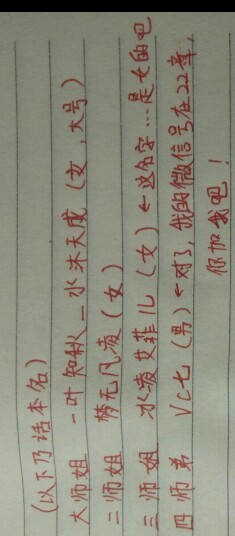 (以下乃话本名)
大师姐 一叶知秋_水沐天成(女,大号)
二师姐 梦无凡凌(女)
三师姐 水凌艾菲儿(女)←这名字…是女的吧
四师弟 Vc七(男)←对了,我的微信号在22章,
你加我吧!